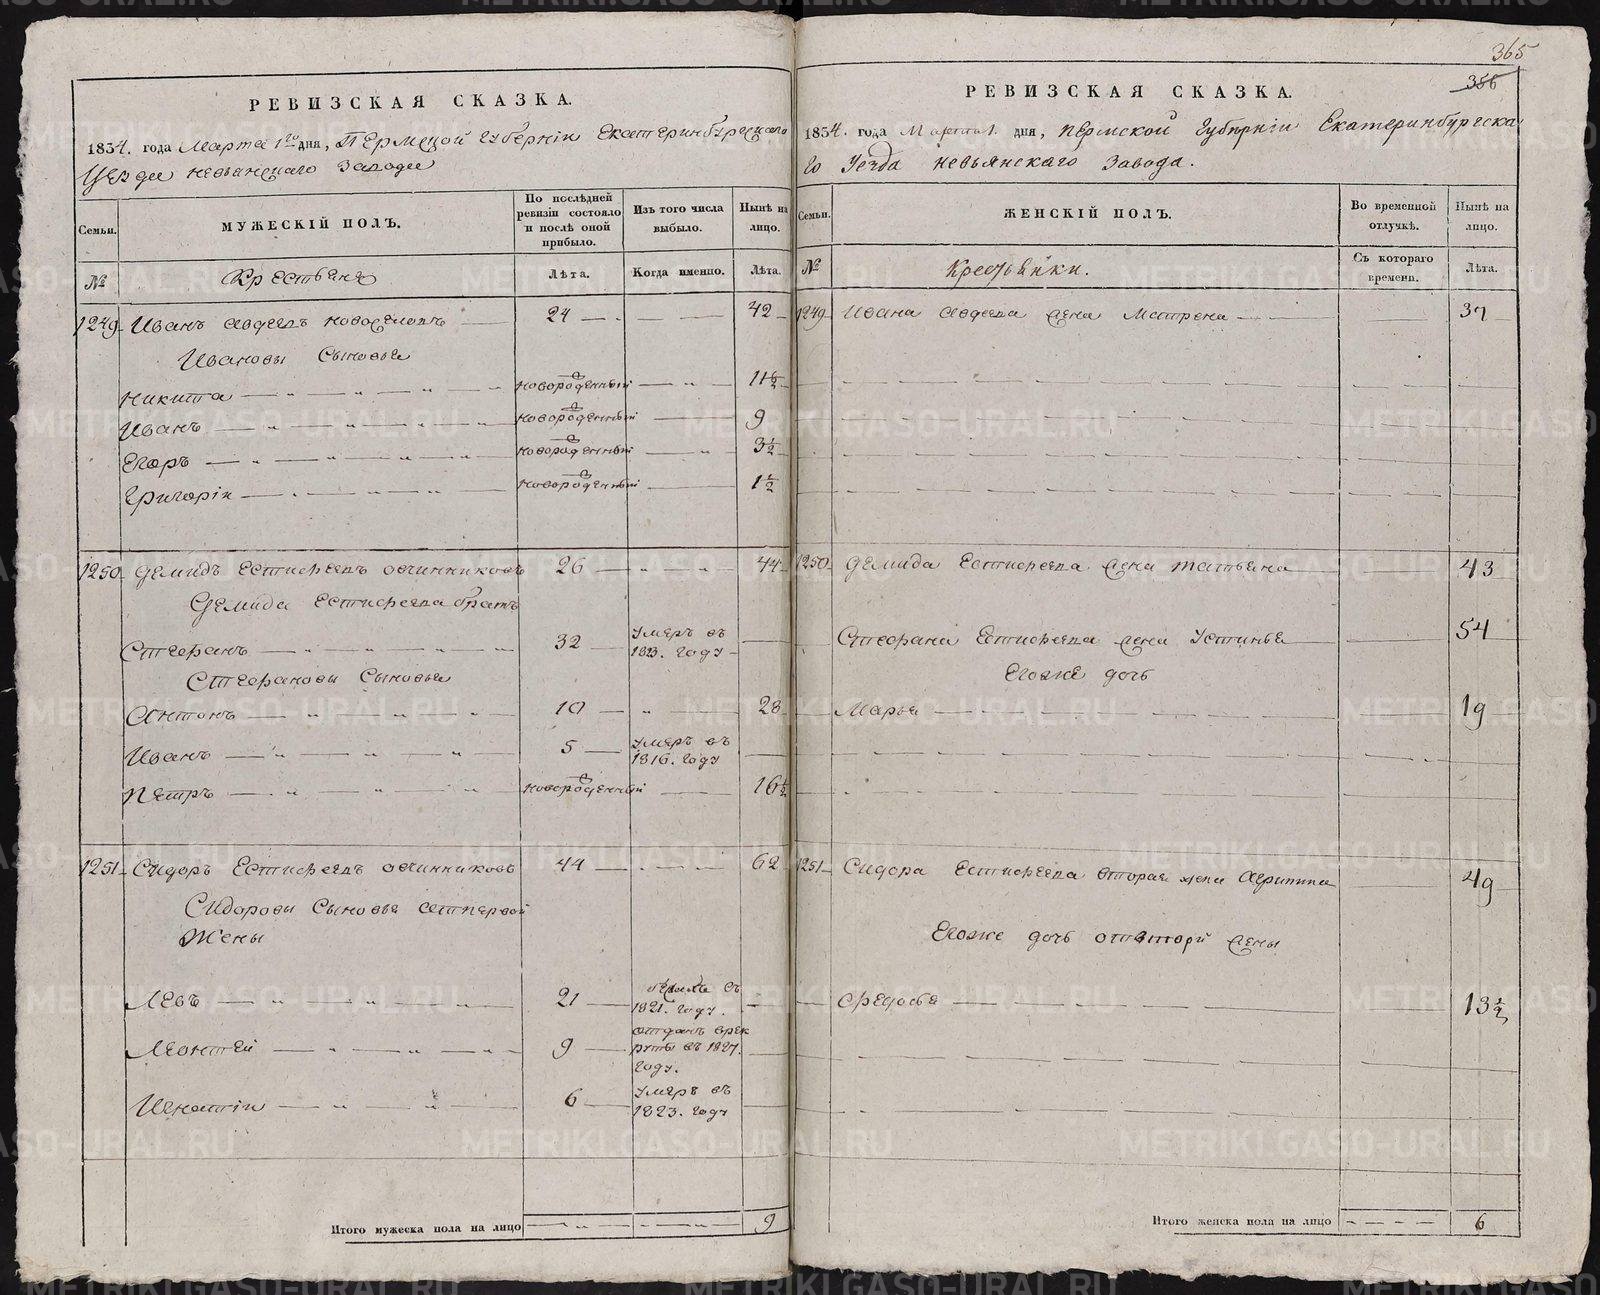 365
356
РЕВИЗСКАЯ СКАЗКА.
1834. года Марта 1го дня, Пермской Губернiи Екатеринбургскаго
Уезда Невьянскаго Завода
Семьи.
МУЖЕСКІЙ ПОЛЪ.
По послѣдней ревизіи состояло и послѣ оной прибыло.
Изъ того числа выбыло.
Нынѣ на лицо.
№
Крестьяне
Лѣта.
Когда именно.
Лѣта.
1249 Иванъ Авдеевъ Новоселовъ 24 42
Ивановы Сыновья
Никита новорожденный 11½
Иванъ новорожденный 9
Егоръ новорожденный 3½
Григорiй новорожденный 1½
1250 Демидъ Естифеевъ Овчинниковъ 26 44
Демида Естифеева братъ
Стефанъ 32 умеръ въ 1823. году
Стефановы Сыновья
Антонъ 10 28
Иванъ 5 умеръ въ 1816. году
Петръ новорожденный 16½
1251 Сидоръ Естифеевъ Овчинниковъ 44 62
Сидоровы Сыновья отпервой
Жены
Левъ 21 1821. году.
Леонтей 9 отданъ врекруты въ 1827. году.
Игнатiй 6 умеръ въ 1823. году
Итого мужеска пола на лицо 9
РЕВИЗСКАЯ СКАЗКА.
1834. года Марта 1. дня, Пермской Губернiи Екатеринбургска
го Уезда Невьянскаго Завода.
Семьи.
ЖЕНСКІЙ ПОЛЪ.
Во временной отлучкѣ.
Нынѣ на лицо.
№
Крестьянки.
Съ котораго времени.
Лѣта.
1249 Ивана Авдеева жена Матрена 37
1250 Демида Естифеева жена Татьяна 43
Стефана Естифеева жена Устинья 54
Егоже дочь
Марья 19
1251 Сидора Естифеева вторая жена Агрипина 49
Егоже дочь отвторй жены
Федосья 13½
Итого женска пола на лицо 6
METRIKI.GASO-URAL.RU